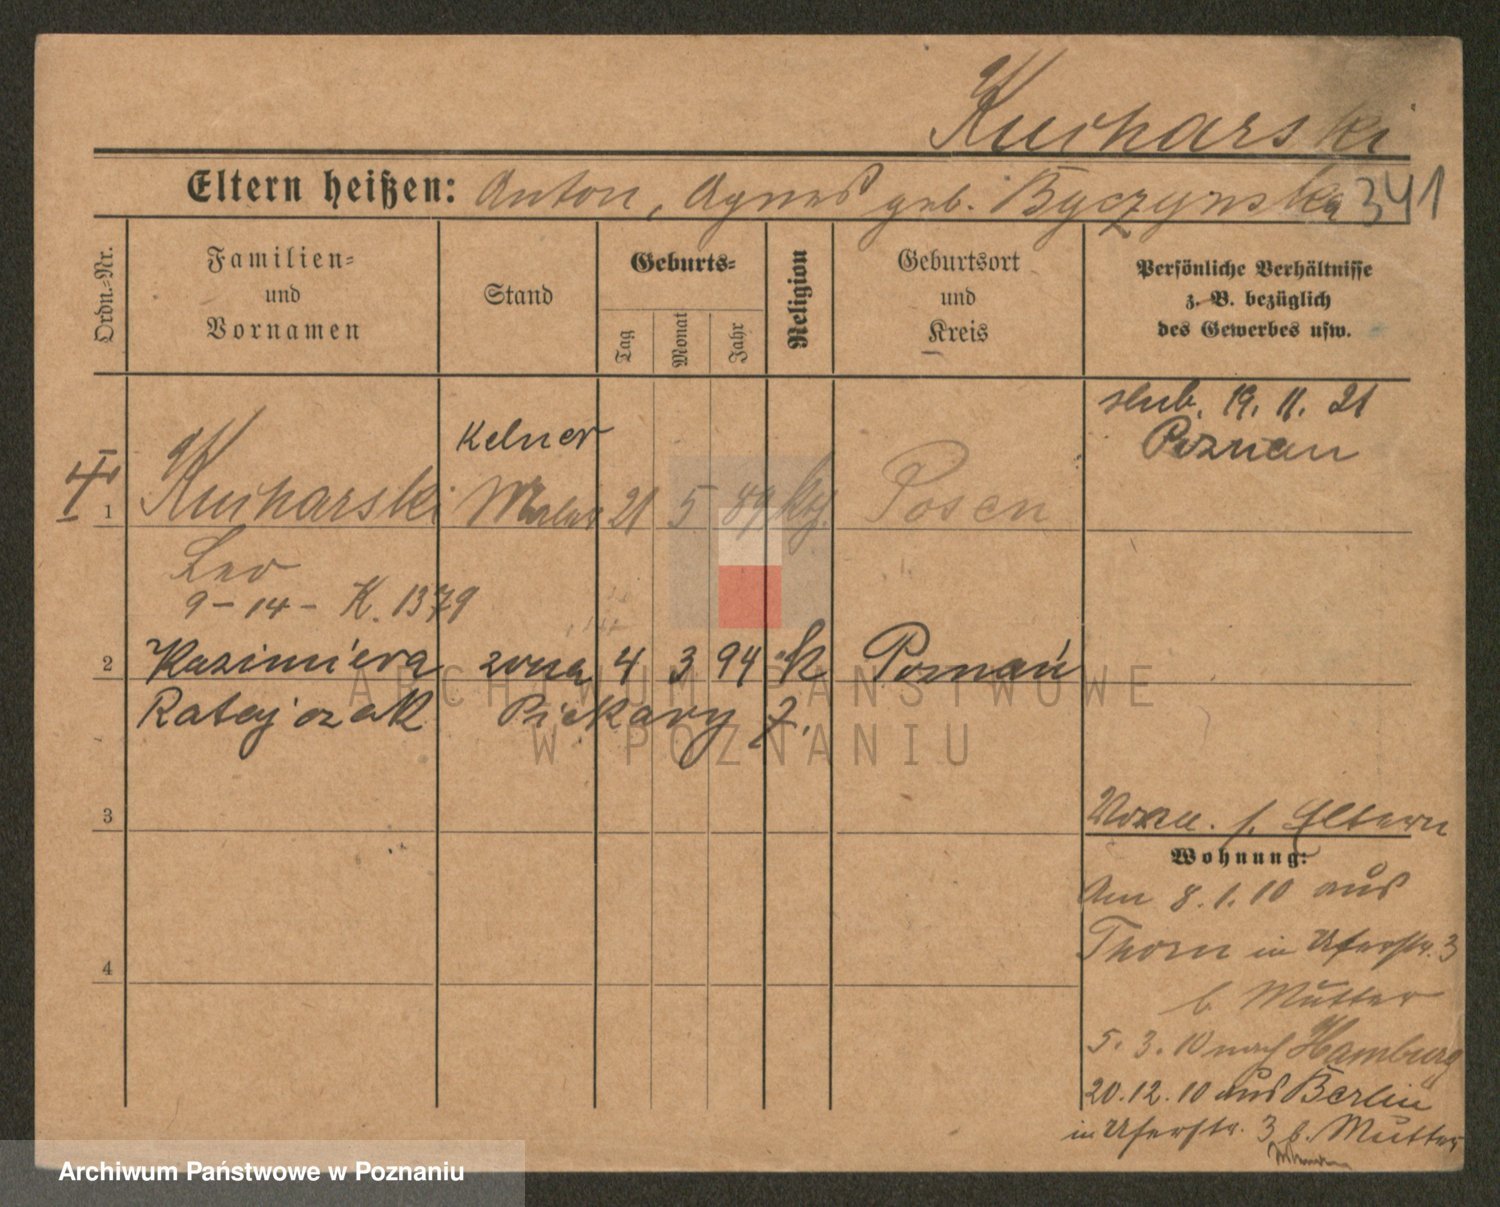 Kucharski
Eltern heißen: Anton, Agnes geb. Byczynska 341
Ordn.-Nr.
Familien-
und
Vornamen
Stand
Geburts-
Tag
Monat
Jahr
Religion
Geburtsort
und
Kreis
Persönliche Verhältnisse
z. B. bezüglich
des Gewerbes usw.
slub. 19. 11. 21
Poznan
Kelner
1 Kucharski Maler 21 5 89 kth. Posen
Leo
9 - 14 - K. 1379
2 Kazimiera zona 4 3 94 k Poznań
Ratajczak Piekary 7.
3
Eltern
Wohnung:
Am 8. 1. 10 aus
Thorn in Uferstr. 3
b. Mutter
5. 3. 10 nach Hamburg
20. 12. 10 aus Berlin
in Uferstr. 3 b. Mutter
4
ARCHIWUM PAŃSTWOWE
W POZNANIU
Archiwum Państwowe w Poznaniu